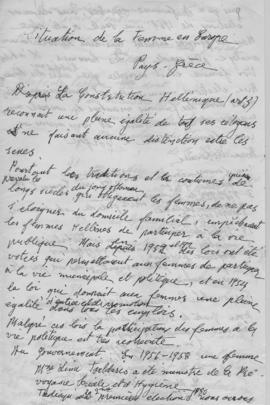 Situation de la Femme en Europe
Pays - Grèce
D'après La Constitution Hellenique (art 3)
reconnait une pleine égalité de tous ses citoyens
et ne faisant aucune distinction entre les
sexes.
Pourtant les traditions et les coutumes
longs siècles du joug obligeaient les femmes, de ne pas
s'éloigner du domicile familial, empêchant
les femmes Hellènes de participer à la vie
publique. Mais 1952 des lois ont été
votées qui permettaient aux femmes de participer
à la vie municipale et politique, et en 1954
la loi qui donnait aux femmes une pleine
égalité dans tous les emplois.
Malgré ces lois la participation des femmes à la
vie politique est très restreinte.
Au gouvernement. En 1956-1958 une femme
Mme Lina Tsaldaris a été ministre de la Pré-
voyance sociale et Hygiène
premières élections nous avons